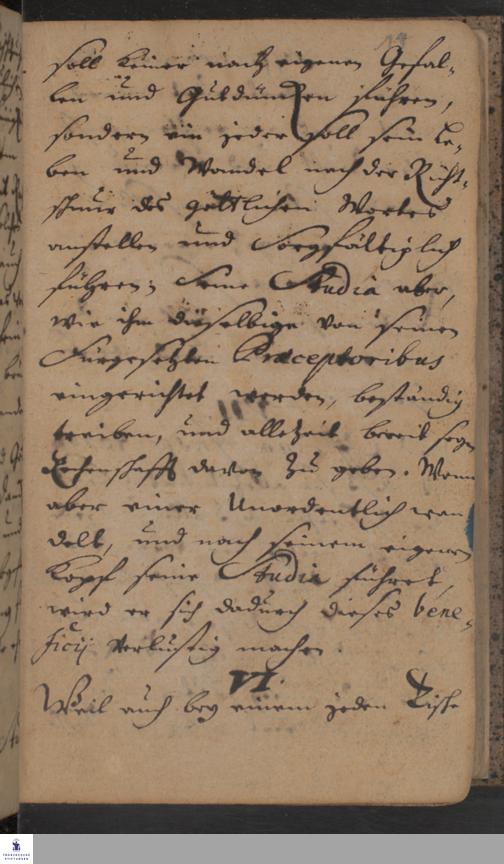 soll keiner nach eigenen Gefal-
len und Gutdüncken führen,
sondern ein jeder soll sein Le-
ben und Wandel nach der Richt-
schnur des göttlichen Wortes
anstellen und Sorgfältiglich
führen; Seine Studia aber,
wie ihm dieselbige von seinen
Fürgesetzten Præceptoribus
eingerichtet werden, beständig
treiben, und allezeit bereit seyn
Rechenschafft davon zu geben. Wenn
aber einer Unordentlich wan
delt, und nach seinem eigenen
Kopf seine Studia führet,
wird er sich dadurch dieses bene-
ficij verlustig machen.
VI.
Weil auch bey einem jeden Tische
FRANCKESCHE
STIFTUNGEN